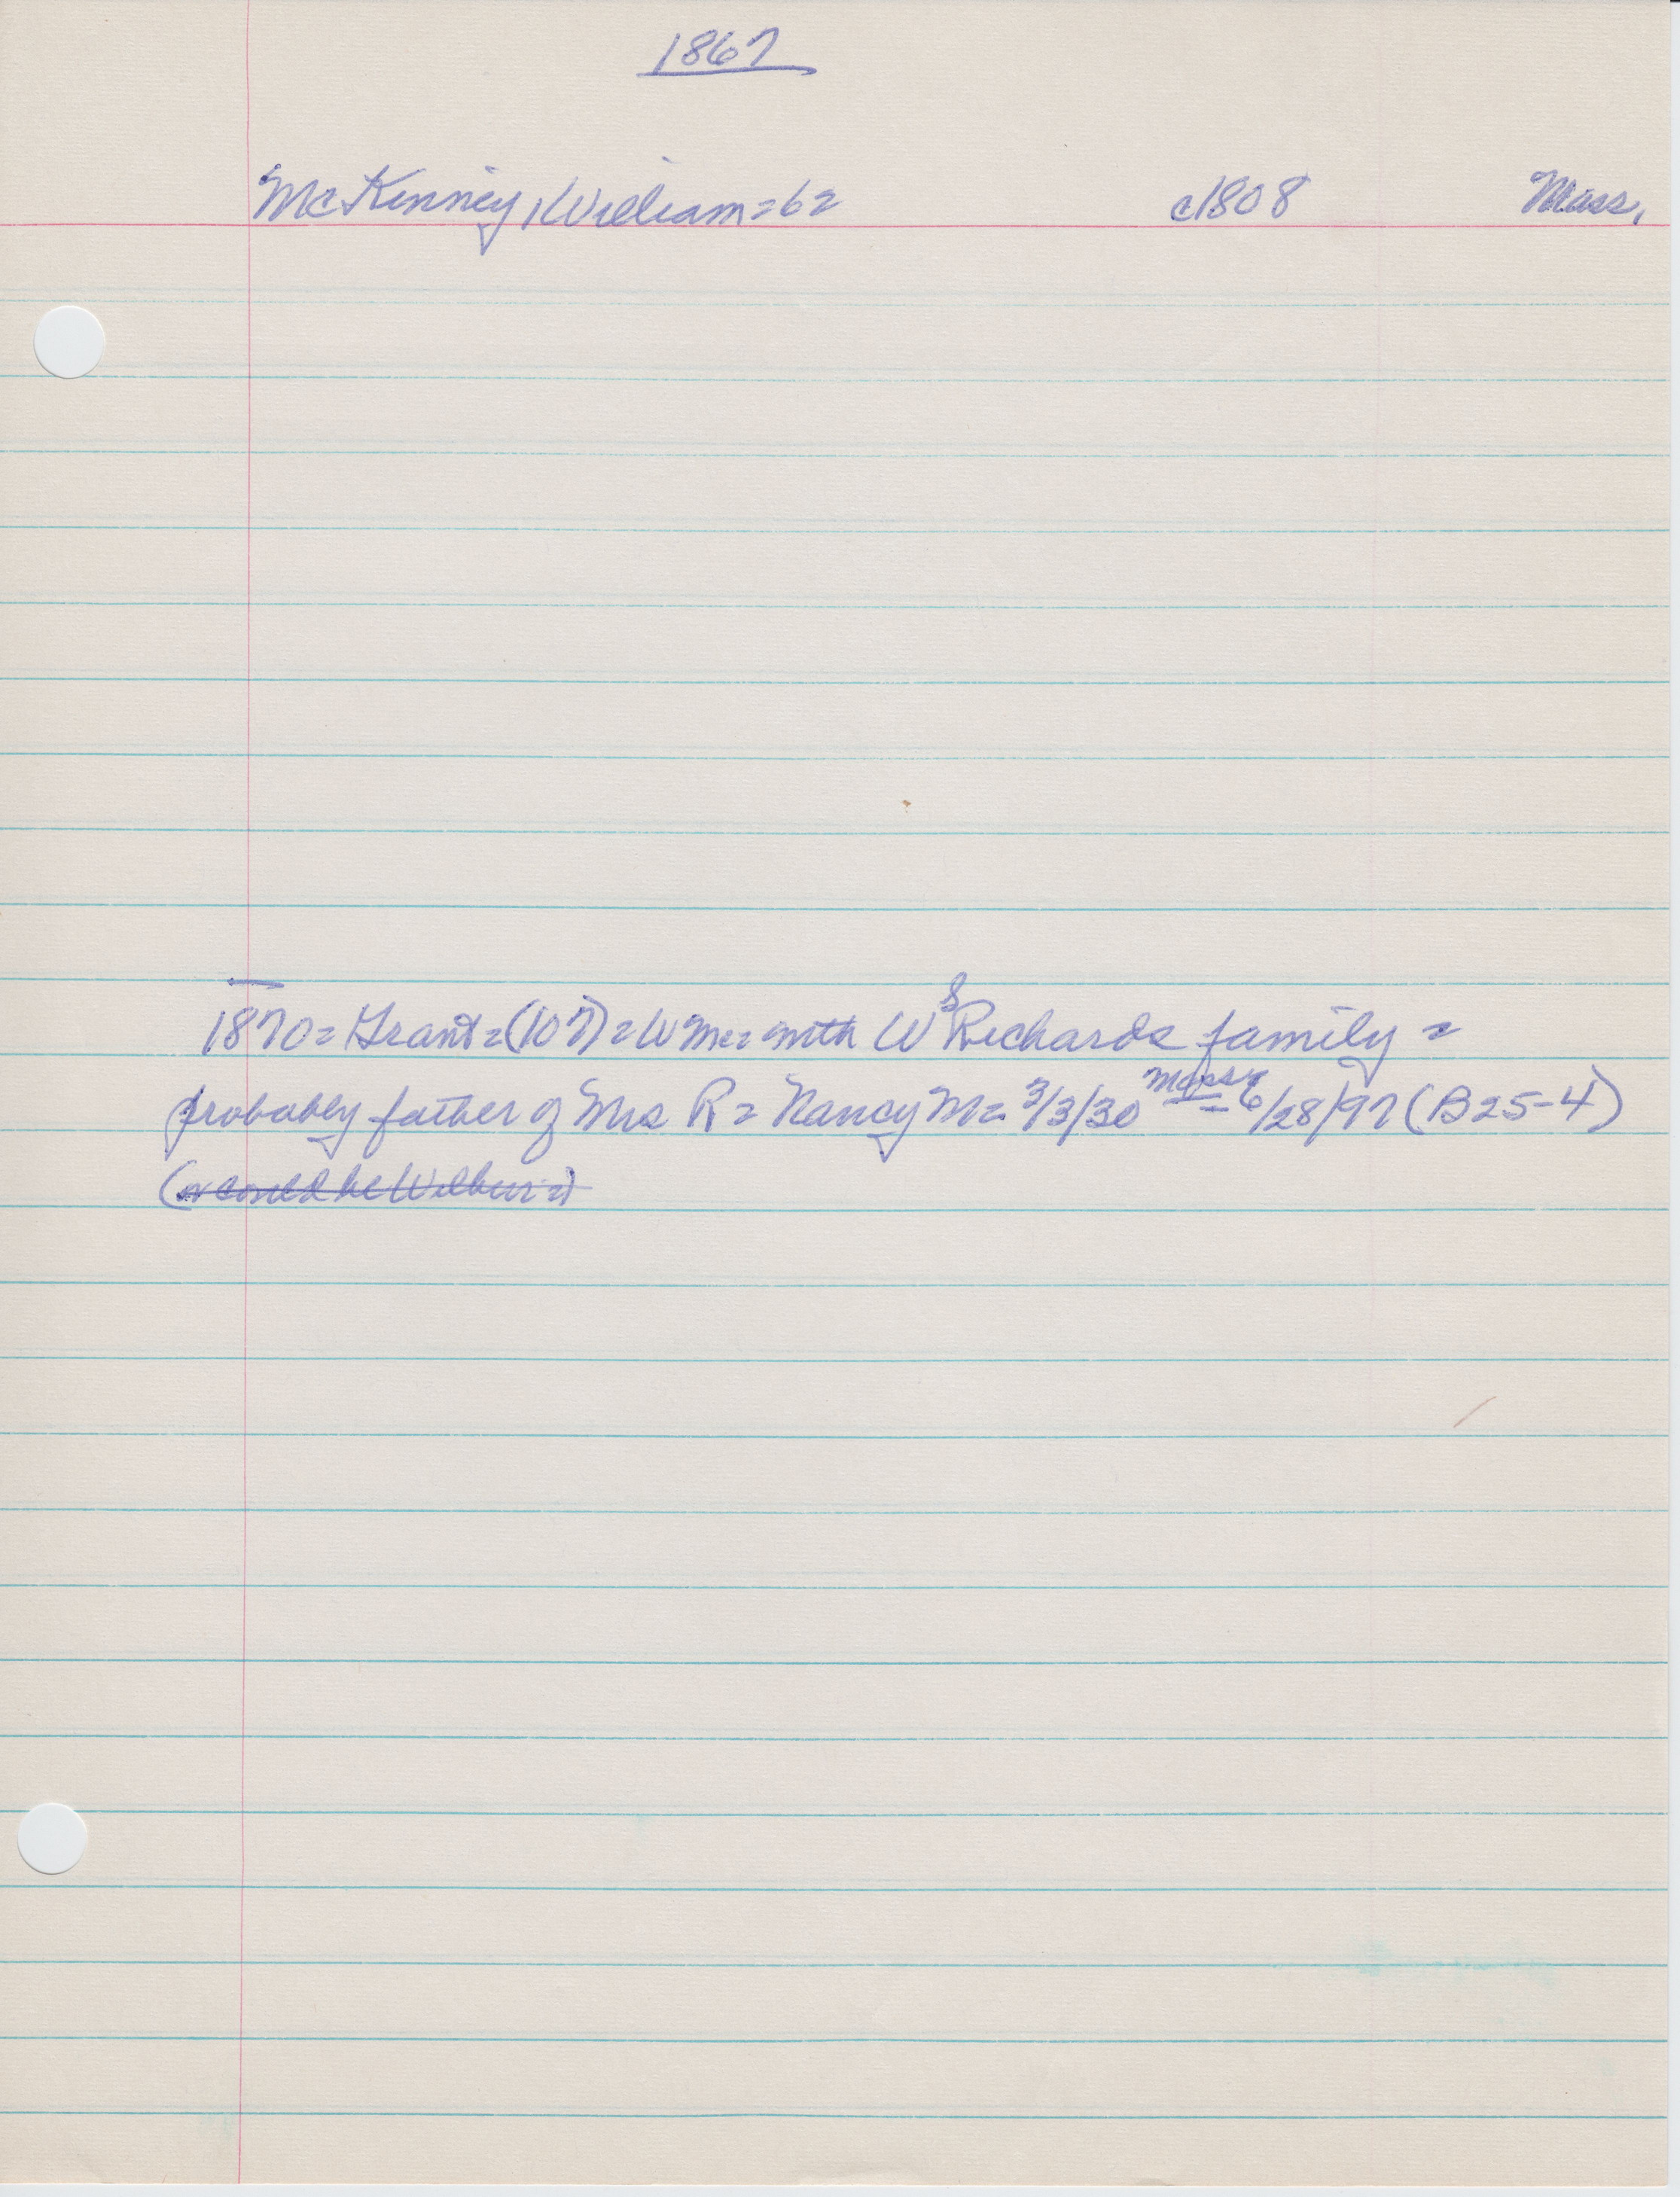 1867
McKinney, William = 62 c1808 Mass.
1870 = Grant = (107) = Wm = with W S Richards family =
probably father of Mrs R = Nancy M = 3/3/30 Mass = 6/28/97 (B25-4)
(or could be Wilbur's)